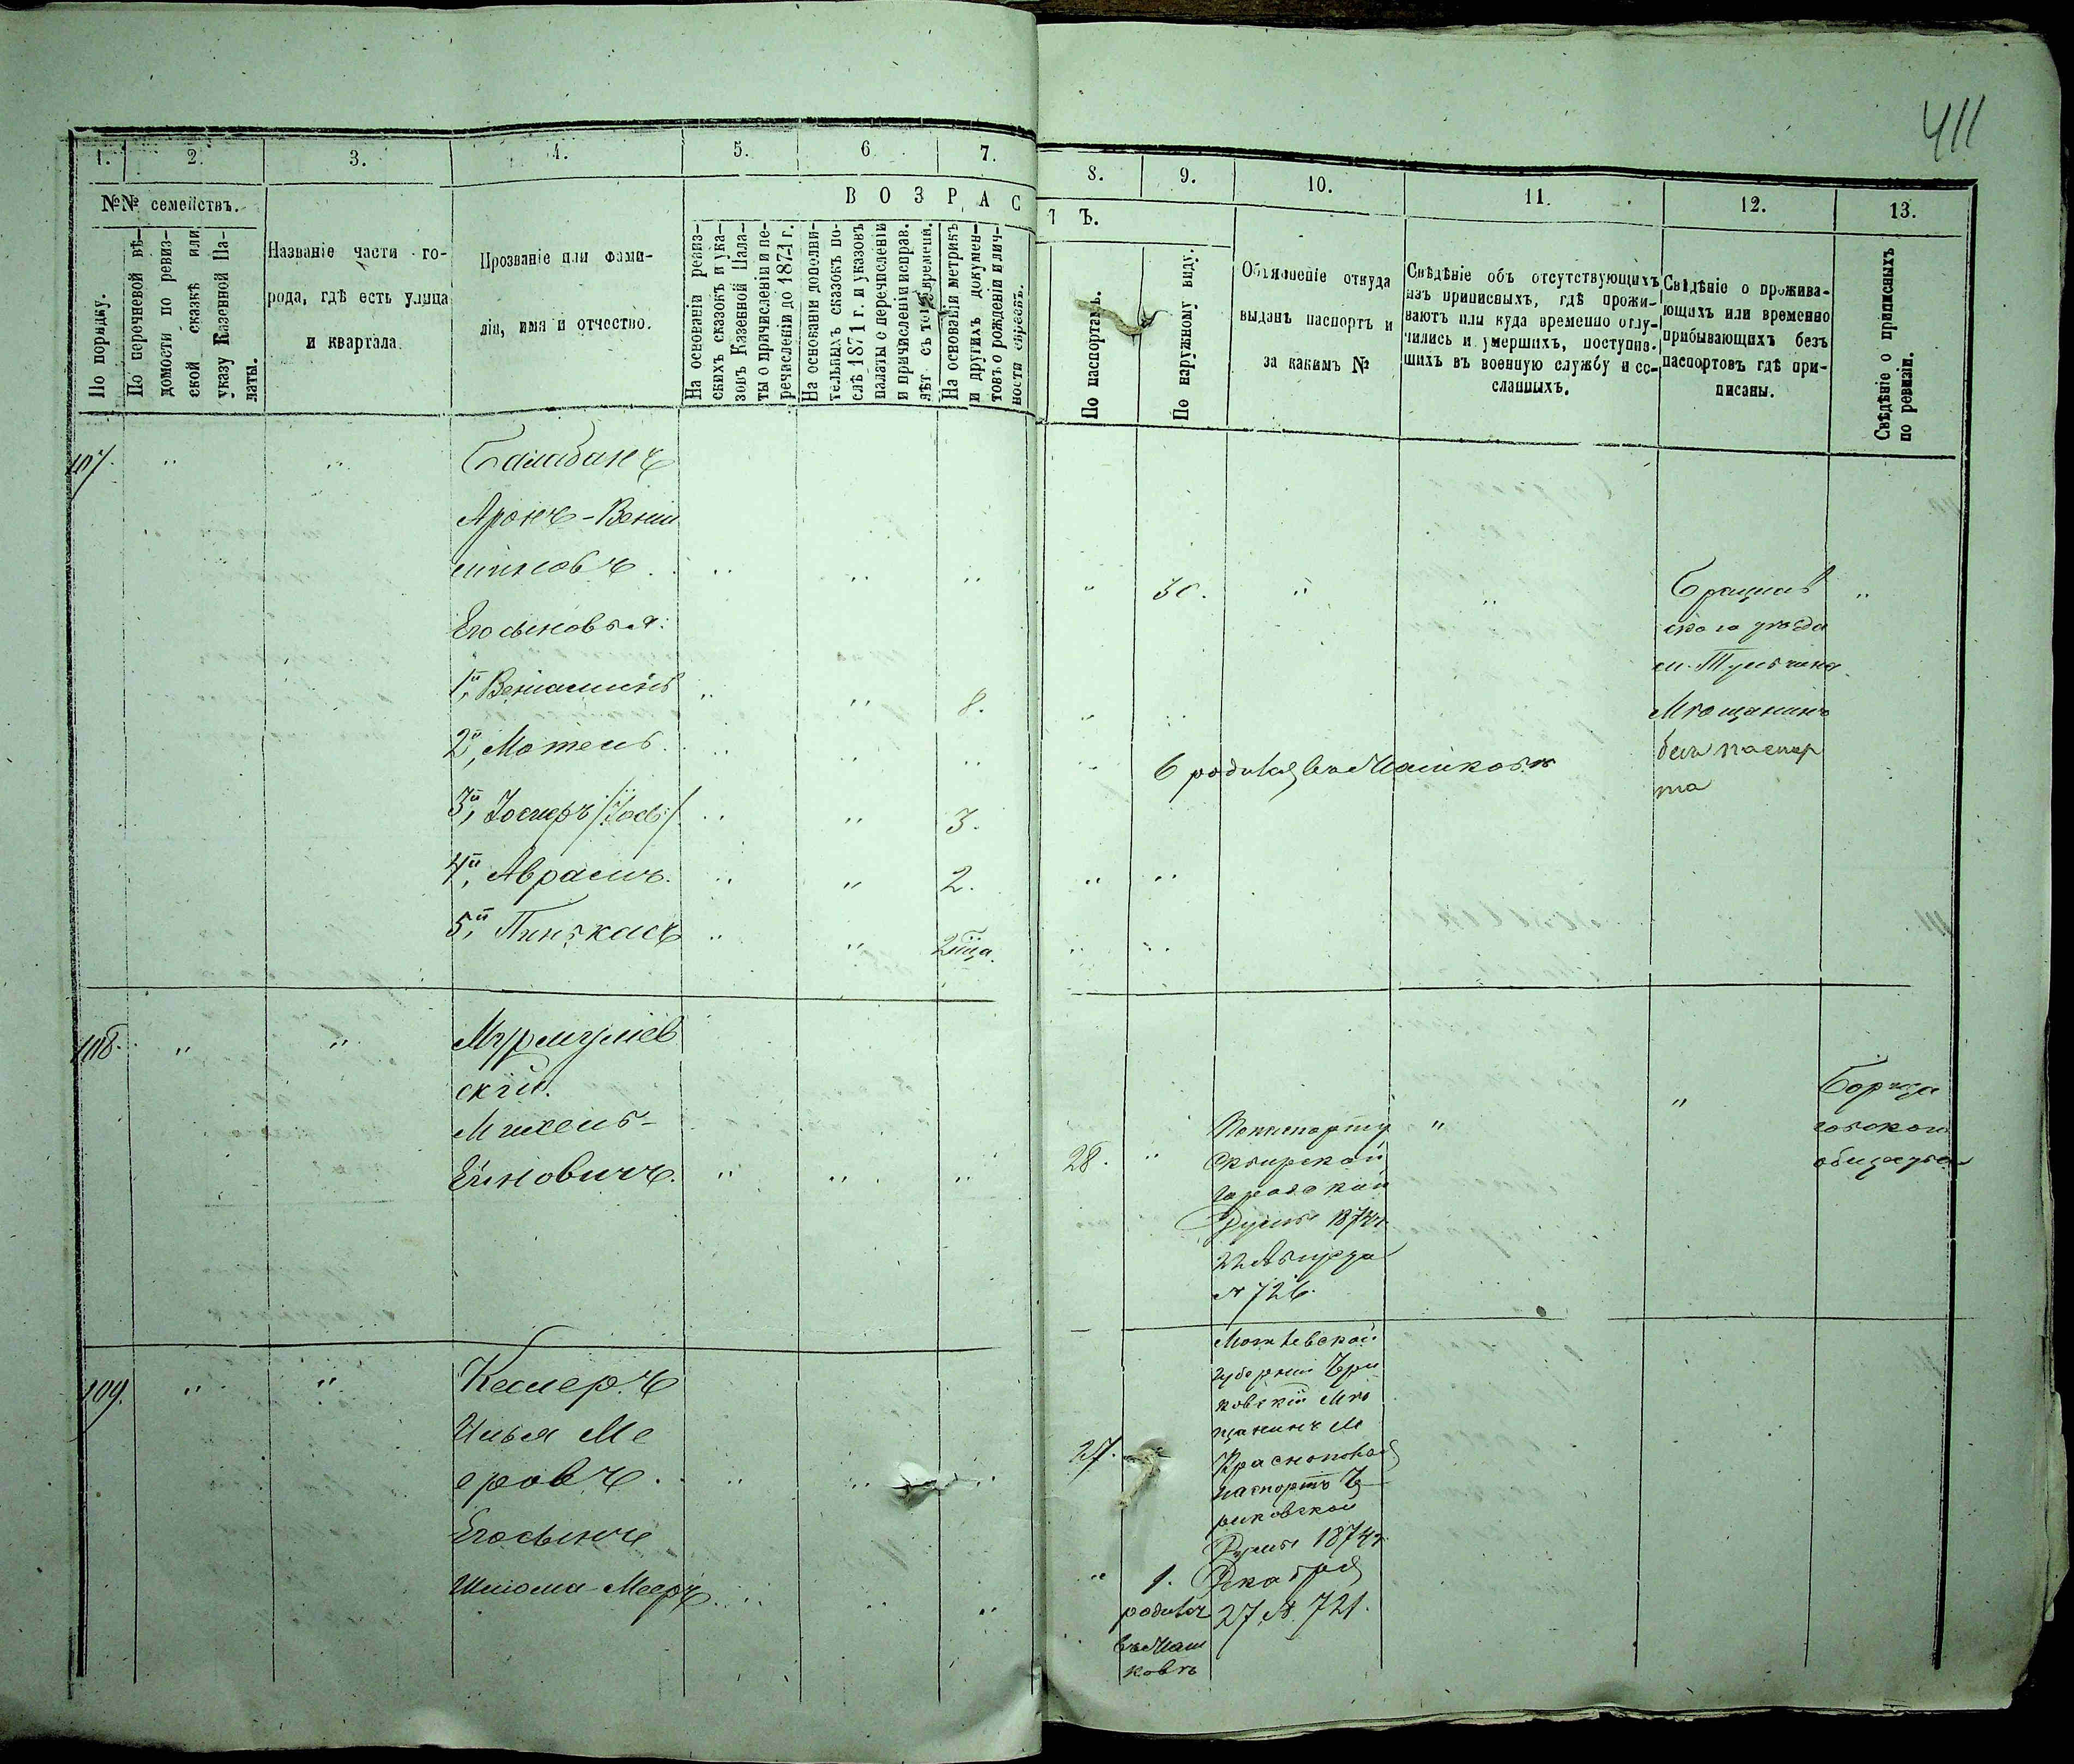 411
1. 2. 3. 4. 5. 6 7.
8. 9. 10. 11. 12. 13.
№№ семействъ.
По порядку.
По перечневой вѣ-
домости по ревиз-
ской сказкѣ или
указу Казенной Па-
латы.
Названіе части го-
рода, гдѣ есть улица
и квартала.
Прозваніе или фами-
лія, имя и отчество.
ВОЗРАС
ТЪ.
На основаніи ревиз-
скихъ сказокъ и ука-
зовъ Казенной Пала-
ты о причисленіи и пе-
речисленіи до 1871 г.
На основаніи дополни-
тельныхъ сказокъ по-
слѣ 1871 г. и указовъ
палаты о перечисленіи
и причисленіи исправ.
лѣт съ того времени.
На основаніи метрикъ
и другихъ докумен-
товъ о рожденіи и лич-
ности евреевъ.
По паспортамъ.
По наружному виду.
Объясненіе откуда
выданъ паспортъ и
за какимъ №
Свѣдѣніе объ отсутствующихъ
изъ приписныхъ, гдѣ прожи-
ваютъ или куда временно отлу-
чились и умершихъ, поступив-
шихъ въ военную службу и со-
сланныхъ.
Свѣдѣніе о прожива-
ющихъ или временно
прибывающихъ безъ
паспортовъ гдѣ при-
писаны.
Свѣдѣніе о приписныхъ
по ревизіи.
107. " " Балабанъ
Аронъ-Вениа
миновъ . " " " " 30. " " Брацлав "
Его сыновья: скаго уѣзда
м. Тульчина
1й, Веніаминъ " " 8. " " Мѣщанинъ
2й, Мотель. " " " " 6 родился въ Машковѣ безъ паспор
та
3й, Іосифъ /Іось/. " " 3.
4й, Аврамъ. " " 2. " "
5й, Пинькасъ " " 2 мца. " "
108. " " Мурмулев
скій.
Михель-
Ейновичъ. " " " 28. "
По паспорту
Сквирской
городской
Думы 1874 г.
№ 726.
" "
общества
109. " " Кеслеръ
Илья Ме
еровъ. " " " 27.
Его сынъ
Шлома-Мееръ " " " " 1.
родился
въ Маш
ковѣ
Могилевской
губерніи Чери
ковскій Мѣ
щанинъ м
Краснополья
паспортъ Че
риковской
Думы 1874 г.
Декабря
27 № 721.